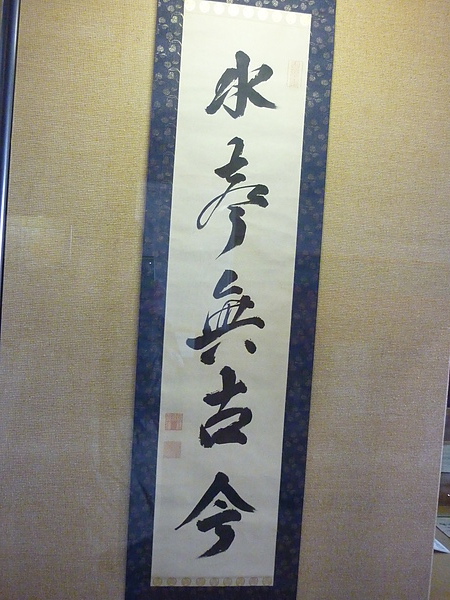 水琴無古今